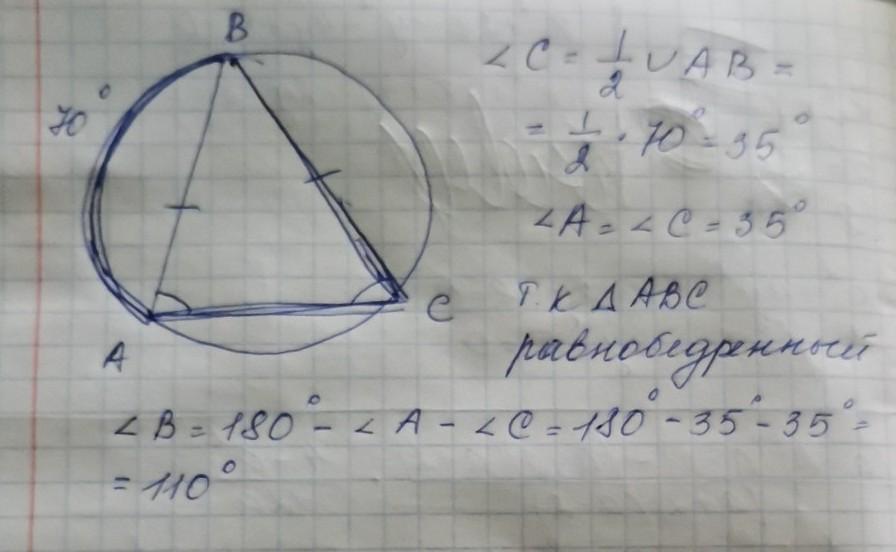 B
70°
A
C
∠C = 1/2 ∪ AB =
= 1/2 · 70° = 35°
∠A = ∠C = 35°
т.к △ABC
равнобедренный
∠B = 180° - ∠A - ∠C = 180° - 35° - 35° =
= 110°